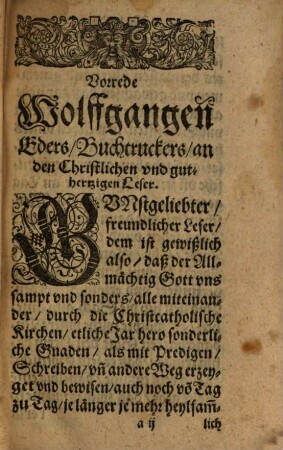 Vorrede
Wolffgangeñ
Eders/Buchtruckers/an
den Christlichen vnd gut-
hertzigen Leser.
GVNstgeliebter/
freundlicher Leser/
dem ist gewißlich
also/ daß der All-
mächtig Gott vns
sampt vnd sonders/alle miteinan-
der/ durch die Christcatholische
Kirchen/ etliche Jar hero sonderli-
che Gnaden/ als mit Predigen/
Schreiben/ vñ andere Weg erzey-
get vnd bewisen/auch noch võ Tag
zu Tag/je länger je mehr heylsam̃-
a ij lich